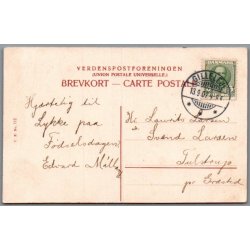 VERDENSPOSTFORENINGEN
(UNION POSTALE UNIVERSELLE.)
BREVKORT — CARTE POSTALE
Hjertelig til
Lykke paa
Fødselsdagen
Edvard
Hr Laurits Larsen
Svend Larsen
Tulstrup
pr